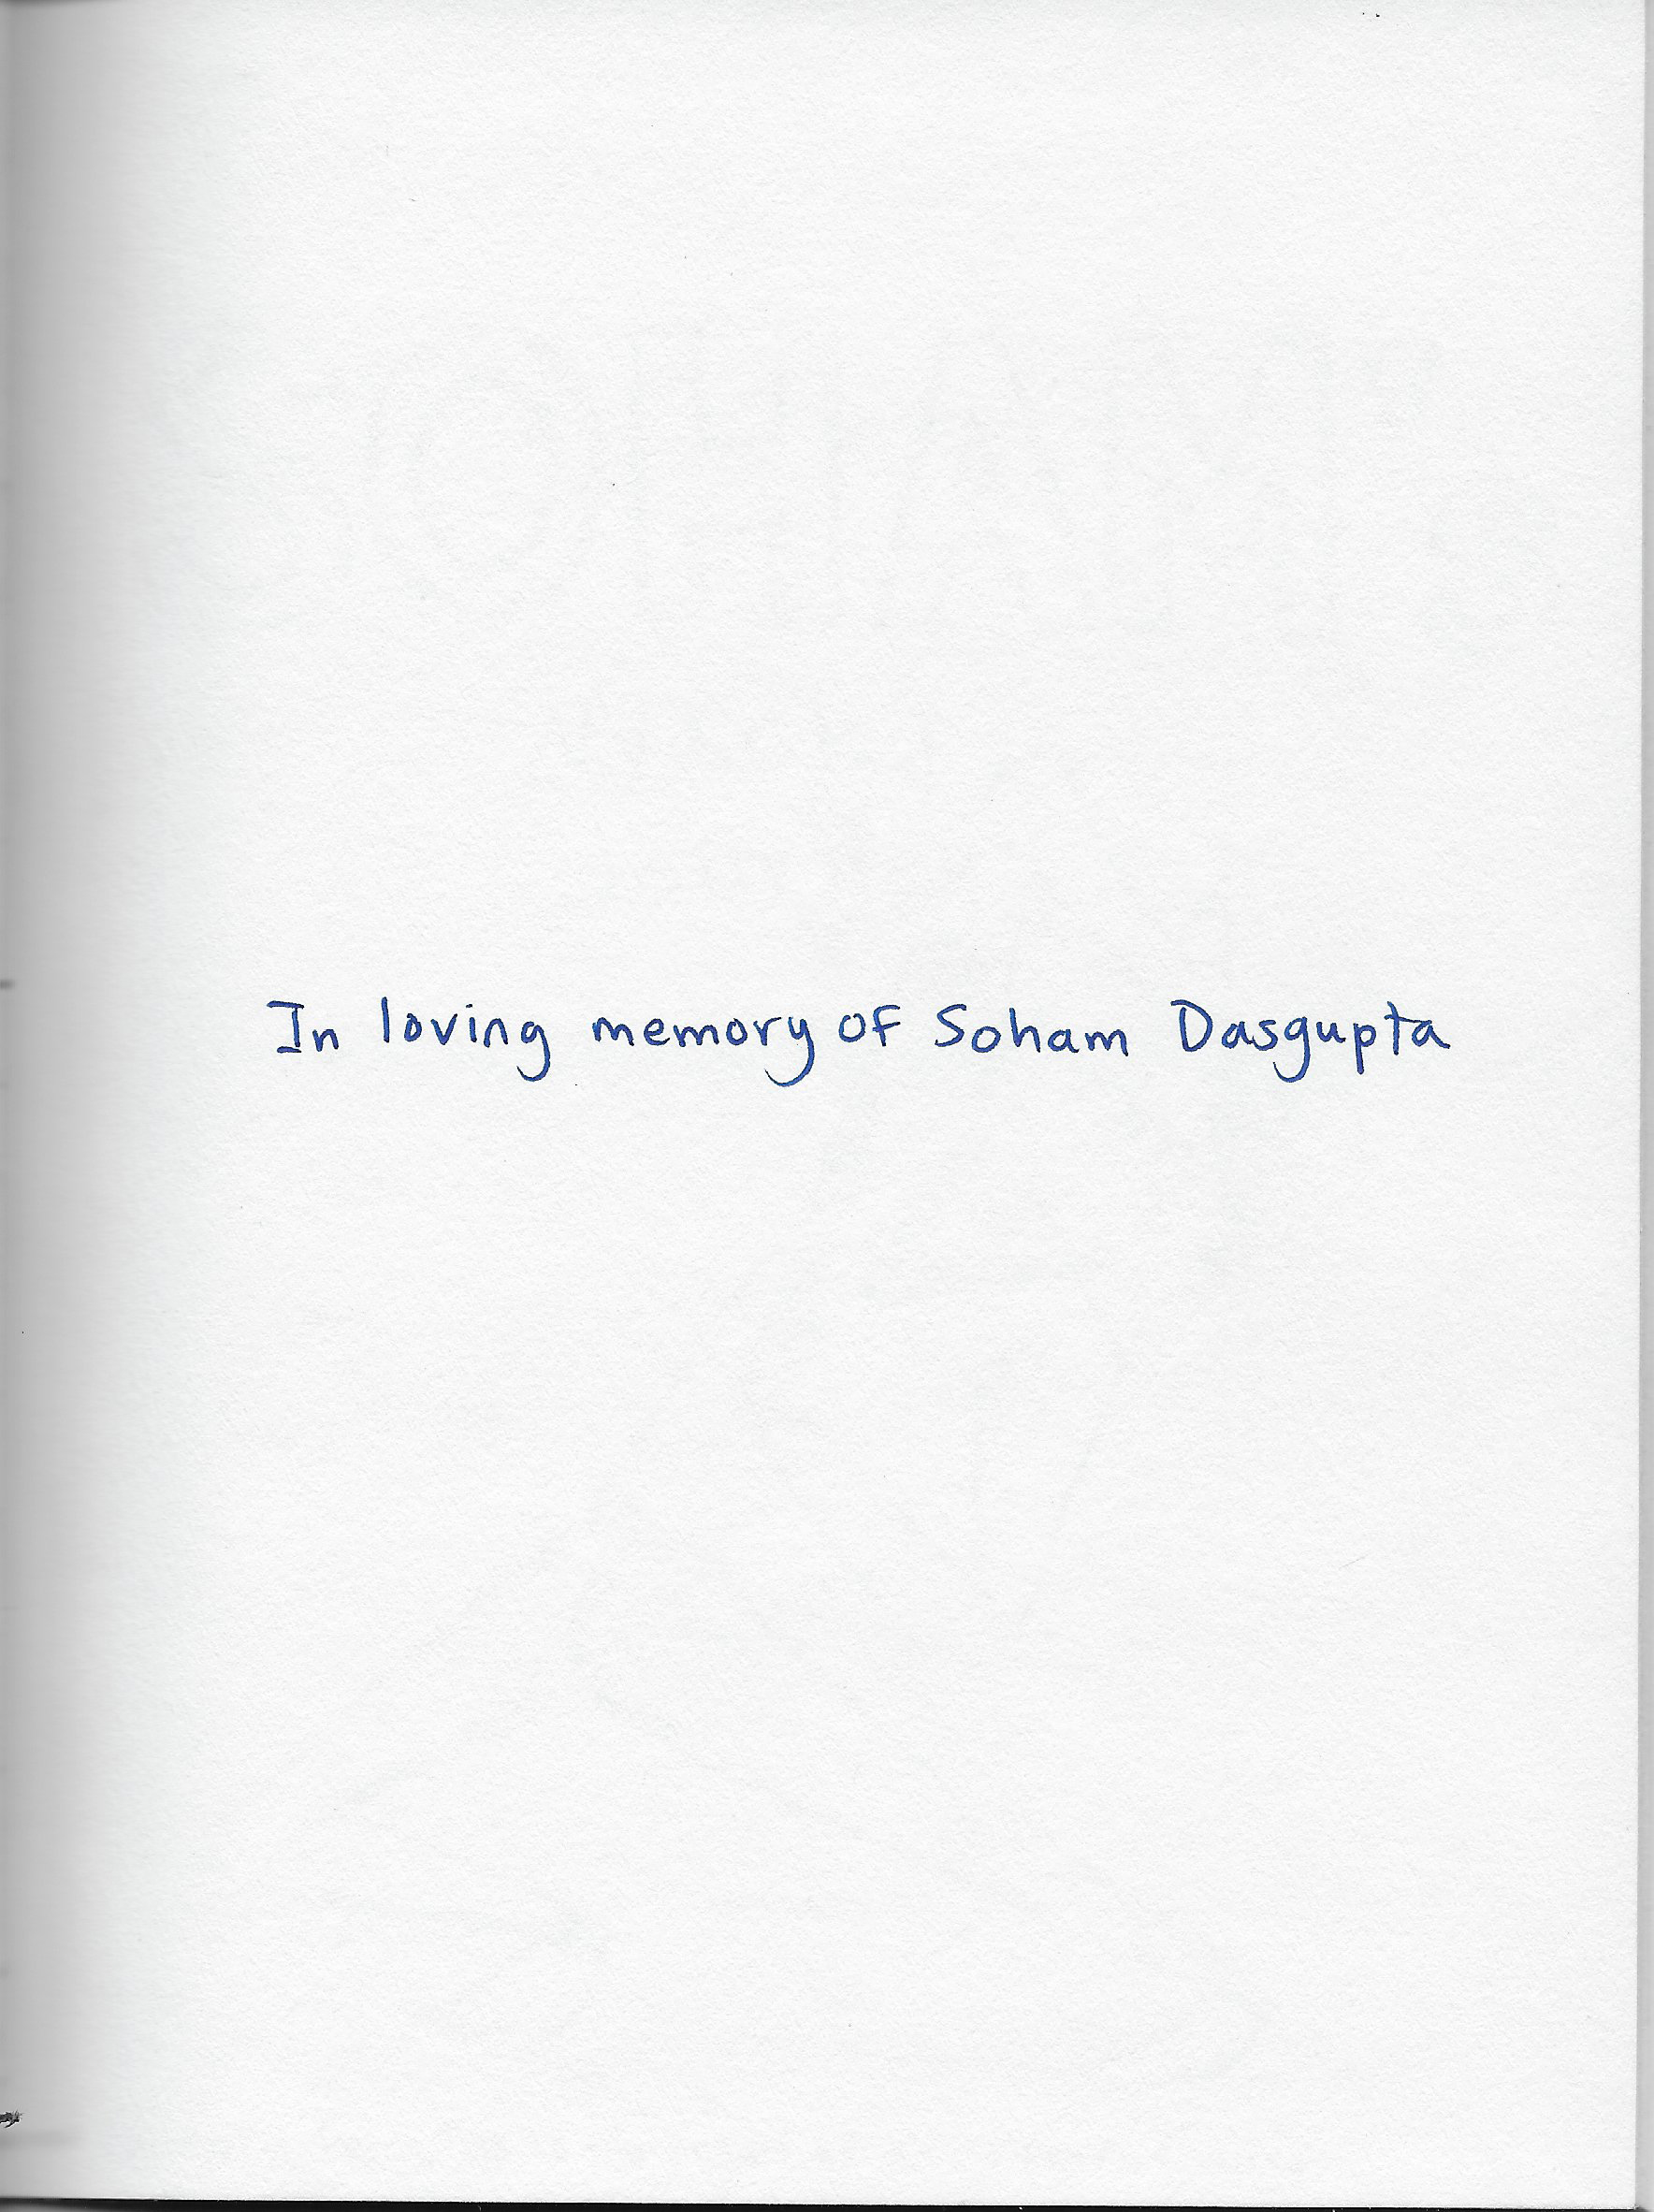 In loving memory of Soham Dasgupta